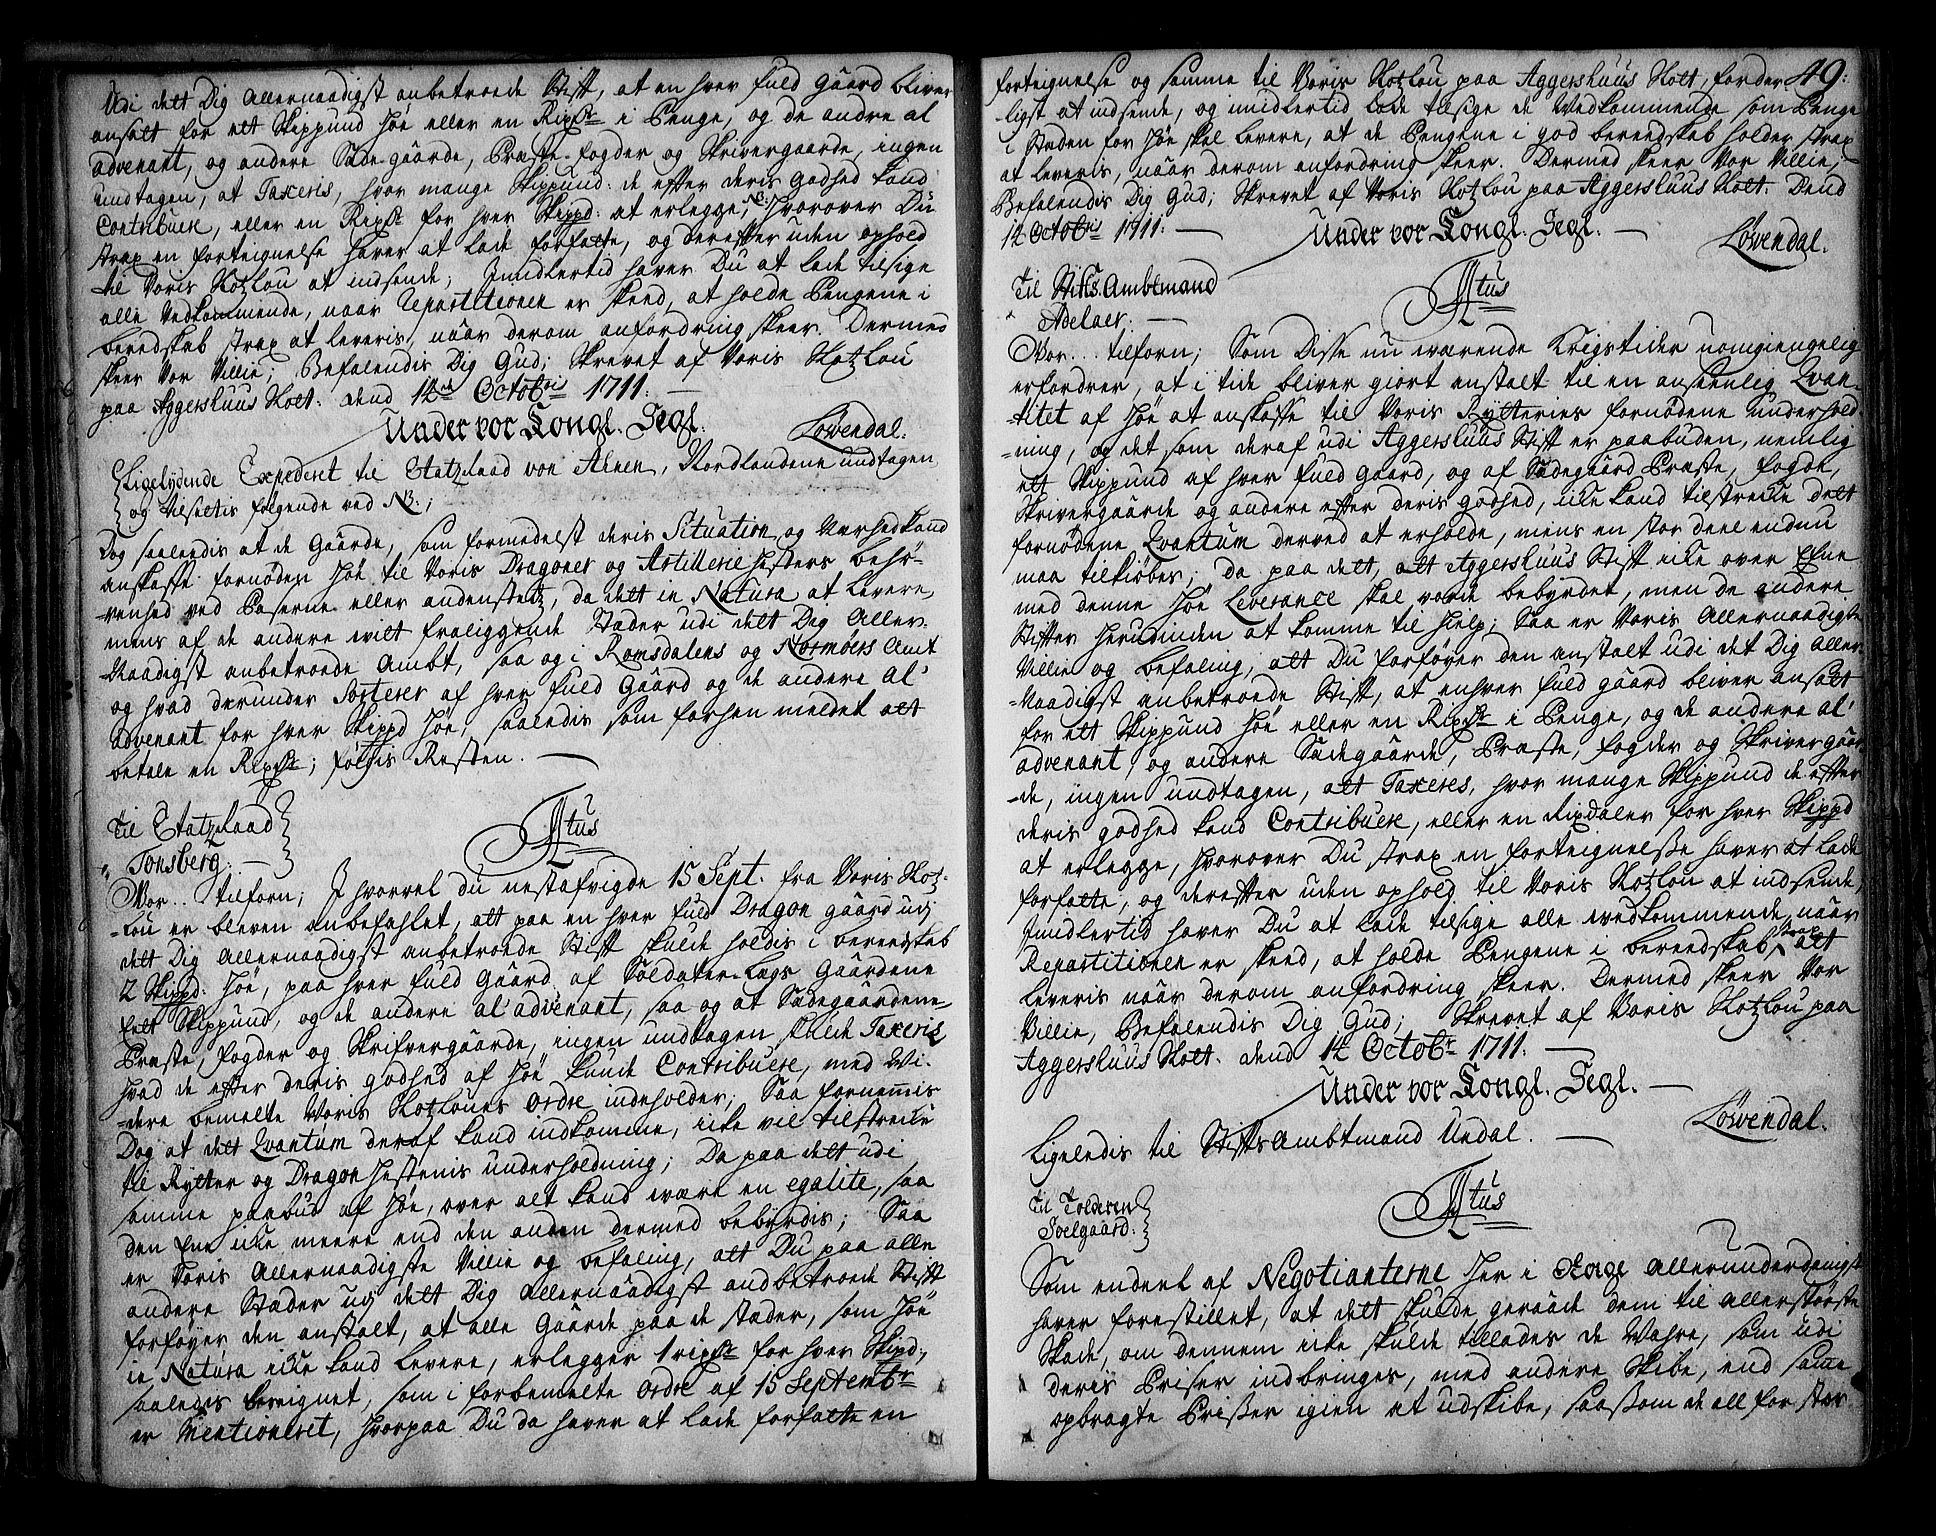 Udi dett Dig Allernaadigst anbetroede Stift, at en hver fuld Gaard bliver
ansatt for ett Skippund Høe eller en Rixdr i Penge, og de andre al
advenant, og andere Sædegaarde, Præste, fogder og Skrivergaarde, ingen
undtagen, at Taxeris, hvor mange Skippund de efter deris godhed kand
Contribuere, eller en Rixdr for hver Skippd: at erlegge; NB. Hvorover Du
strax en forteignelse haver at lade forfatte, og derefter uden ophold
til Voris Slotzlou at indsende; Imidlertid haver Du at lade tilsige
alle Vedkommende, naar Repartitionen er skeed, at holde Pengene i
beredskab strax at leveris, naar derom anfordring skeer. Dermed
skeer Vor Villie; Befalendis Dig Gud; Skrevet af Voris Slotzlou
paa Aggershuus Slott. dend 12de Octobris 1711. —
Under vor Kongl. Segl.
Løwendal.
Ligelydende Expederet til Etatzraad von Ahnen, Nordlandene undtagen
og tilsettis følgende ved NB.;
Dog saaledis at de Gaarde, som formedelst deris Situation og Nærhed kand
anskaffe fornøden Høe til Voris Dragoner og Artillerie hesters behø-
-venhed ved Caserne eller andenstetz, da dett in Natura at levere,
mens af de andere wilt fraliggende Stæder udi dett Dig Aller-
-Naadigst anbetroede Ambt, saa og i Romsdalens og Normørs Amt
og hvad derunder Sorterer af hver fuld Gaard og de andere al'
advenant for hver Skippd Høe, saaledis som forhen meldet att
betale en Rixdr; følgis Resten. —
Til Etatzraad
Tonsberg. —
Atus
Vor... tilforn; Ihvorvel du nestafvigde 15 Sept. fra Voris Slotz-
-lou er bleven anbefahlet, att paa en hver fuld Dragon gaard udj
dett Dig Allernaadigst anbetroede Stift skulde holdis i bereedskab
2 Skippd: Høe, paa hver fuld Gaard af Soldater-Lægs Gaardene
Ett Skippund, og de andere al' advenant, saa og at Sædegaardene
Præste, fogder og Skrifvergaarde, ingen undtagen skulde Taxeris
hvad de efter deris godhed af Høe kunde Contribuere, med Vi-
-dere bemelte Voris Slotzloues Ordre indeholder; Saa fornemmis
Dog at dett Qvantum deraf kand indkomme, icke vil tilstrecke
til Rytter og Dragon Hestenis underholdning; Da paa dett udi
samme paabud af Høe, over alt kand være en egalite, saa
den Ene icke meere end den anden dermed bebyrdis; Saa
er Voris Allernaadigste Villie og befaling, att Du paa alle
andere Stæder udj dett Dig Allernaadigst andbetroede Stift
forføyer den anstalt, at alle Gaarde paa de stæder, som Høe
in Natura icke kand levere, erlegger 1 rixdr for hver Skippd;
saaledis beregnet, som i forbemelte Ordre af 15 Septembr
er Mentioneret, hvorpaa Du da haver at lade forfatte en
49.
forteignelse og samme til Voris Slotzlou paa Aggershuus Slott forder-
-ligst at indsende, og imidlertid lade tilsige de Vedkommende som Penge
i Steden for Høe skal levere, at de Pengene i god bereedskab holder strax
at leveris, naar derom anfordring skeer. Dermed skeer Vor Villie;
Befalendis Dig Gud; Skrevet af Voris Slotzlou paa Aggershuus Slott. Dend
12 Octobris 1711. —
Under vor Kongl. Segl. —
Løwendal.
Til Stifts Ambtmand
Adelaer. —
Atus
Vor... tilforn; Som Disse nu wærende Krigstider uomgiengelig
erfordrer, at i tide bliver giort anstalt til en anseenlig Qvan-
-titet af Høe at anskaffe til Voris Rytteries fornødene Underhold-
-ning, og det som deraf udi Aggershuus Stift er paabuden, nemlig
ett Skippund af hver fuld Gaard, og af Sædegaard Præste, fogde,
Skrivergaarde og andere efter deris godhed, icke kand tilstrecke dett
fornødene Qvantum derved at erholde, mens en stor deel endnu
maa tilkiøbes; da paa dett, att Aggershuus Stift icke over Efne
med denne Høe Leverance skal vorde bebyrdet, men de andere
Stifter herudinden at komme til hielp; Saa er Voris Allernaadigste
Villie og befaling, att Du forføyer den anstalt udi det Dig Aller-
-Naadigst anbetroede Stift, at enhver fuld gaard bliver ansatt
for ett Skippund Høe eller en Rixdr i Penge, og de andere al'
advenant, og andere Sædegaarde, Præste, fogder og Skrivergaar-
-de, ingen undtagen, att Taxeres, hvor mange Skippund de efter
deris godhed kand Contribuere, eller en Rixdaler for hver Skippd
at erlegge, hvorover Du strax en forteignelse haver at lade
forfatte, og derefter uden ophold til Voris Slotzlou at indsende,
Imidlertid haver Du at lade tilsige alle wedkommende, naar
Repartitionen er skeed, at holde Pengene i bereedskab strax att
leveris naar derom anfordring skeer. Dermed skeer Vor
Villie, Befalendis Dig Gud; Skrevet af Voris Slotzlou paa
Aggershuus Slott. dend 12 Octobr 1711. —
Under vor Kongl. Segl. —
Løwendal.
Ligeledis til Stiftsambtmand Undal. —
Til Tolderen
Soelgaard.
Atus
Som endeel af Negotianterne her i Norge allerunderdanigst
haver forestillet, at dett skulde geraade dem til allerstørste
Skade, om dennem icke skulde tillades de Wahre, som udi
deris Priser indbringes, med andere Skibe, end samme
opbragte Prisser igien at udskibe, saasom de all for stor